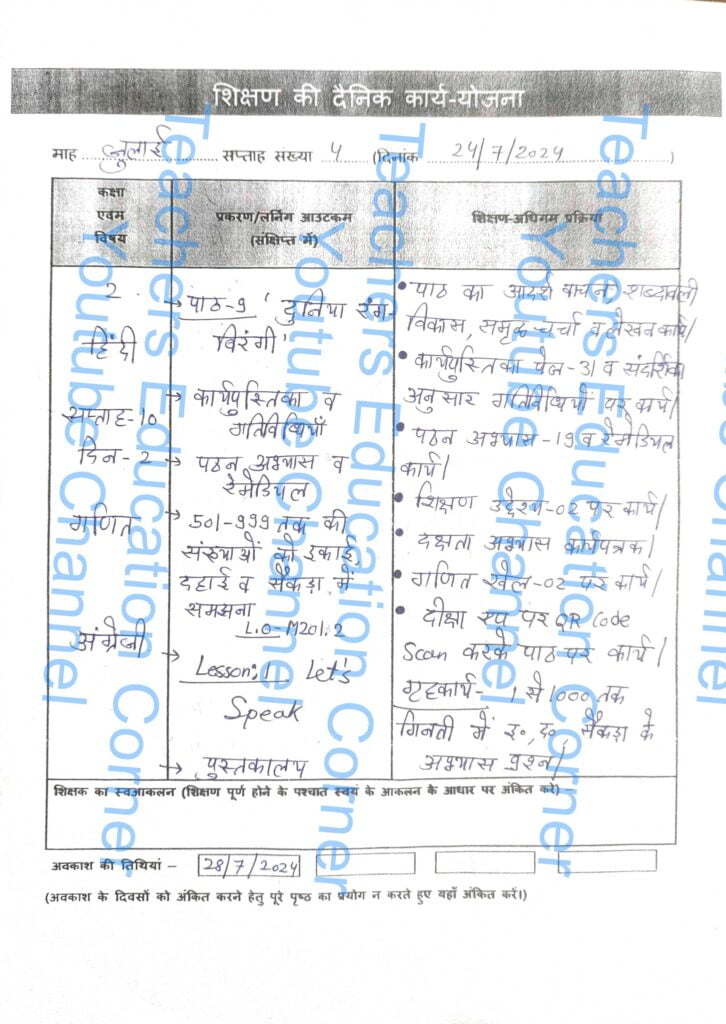 शिक्षण की दैनिक कार्य-योजना
माह जुलाई सप्ताह संख्या 4 (दिनांक 24/7/2024)
कक्षा
एवम
विषय
प्रकरण/लर्निंग आउटकम
(संक्षिप्त में)
शिक्षण-अधिगम प्रक्रिया
2
हिंदी
सप्ताह-10
दिन-2
गणित
अंग्रेजी
→ पाठ-9 'दुनिया रंग-
बिरंगी'
→ कार्यपुस्तिका व
गतिविधियाँ
→ पठन अभ्यास व
रेमेडियल
→ 501-999 तक की
संख्याओं को इकाई,
दहाई व सैकड़ा में
समझना
L.O-M201.2
→ Lesson:1 Let's
Speak
→ पुस्तकालय
• पाठ का आदर्श वाचन, शब्दावली
विकास, समूह चर्चा व लेखन कार्य/
• कार्यपुस्तिका पेज-31 व संदर्शिका
अनुसार गतिविधियों पर कार्य/
• पठन अभ्यास-19 व रेमेडियल
कार्य/
• शिक्षण उद्देश्य-02 पर कार्य/
• दक्षता अभ्यास कार्यपत्रक/
• गणित खेल-02 पर कार्य/
• दीक्षा एप पर QR Code
Scan करके पाठ पर कार्य/
गृहकार्य- 1 से 1000 तक
गिनती में इ०, द०, सैकड़ा के
अभ्यास प्रश्न/
शिक्षक का स्वआकलन (शिक्षण पूर्ण होने के पश्चात स्वयं के आकलन के आधार पर अंकित करें) –
अवकाश की तिथियां – 28/7/2024
(अवकाश के दिवसों को अंकित करने हेतु पूरे पृष्ठ का प्रयोग न करते हुए यहाँ अंकित करें।)
Teachers Education Corner
Youtube Channel
Teachers Education Corner
Youtube Channel
Teachers Education Corner
Youtube Channel